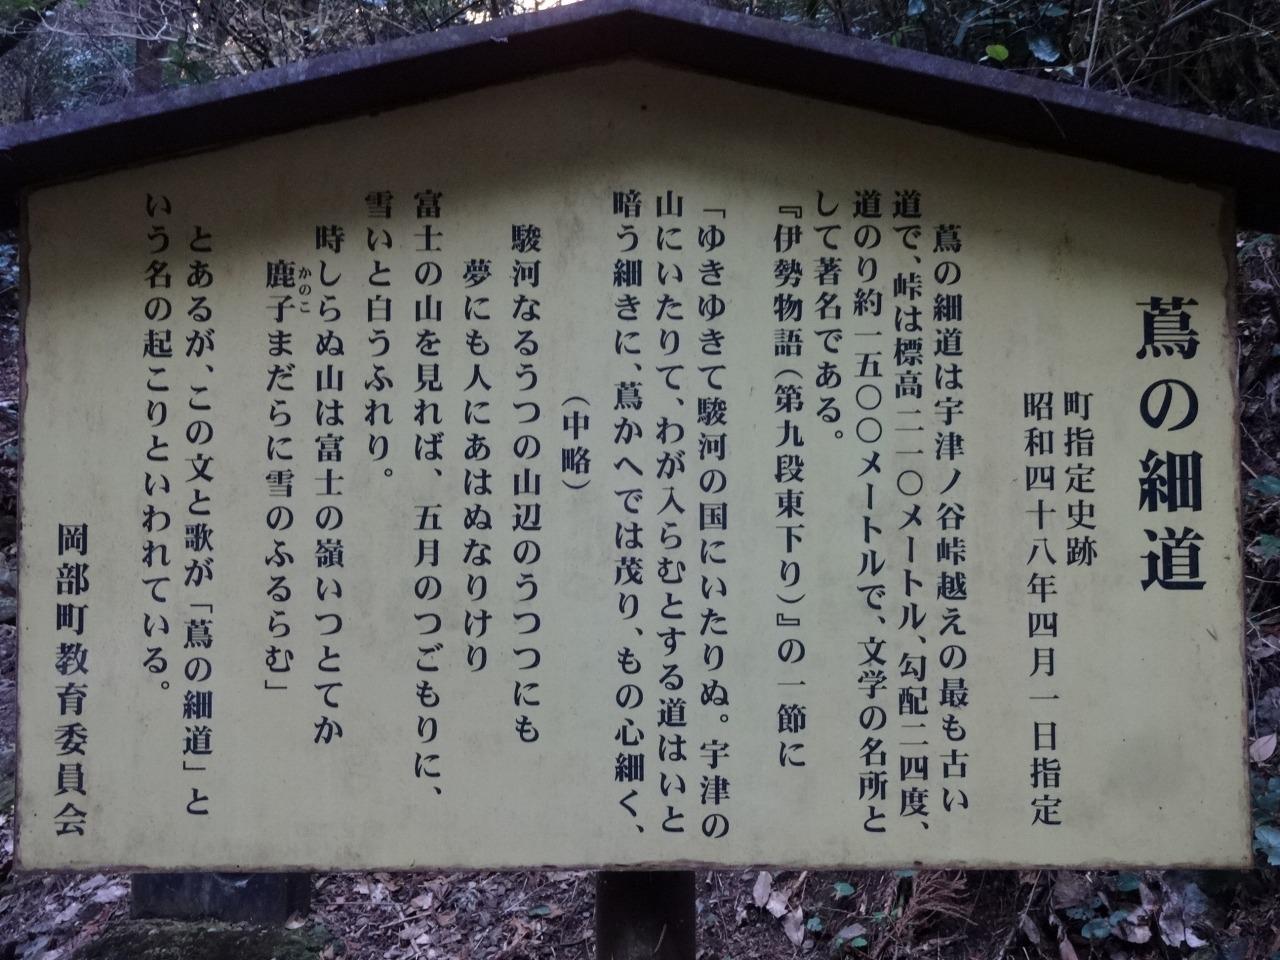 蔦の細道
町指定史跡
昭和四十八年四月一日指定
蔦の細道は宇津ノ谷峠越えの最も古い
道で、峠は標高二一〇メートル、勾配二四度、
道のり約一五〇〇メートルで、文学の名所と
して著名である。
『伊勢物語（第九段東下り）』の一節に
「ゆきゆきて駿河の国にいたりぬ。宇津の
山にいたりて、わが入らむとする道はいと
暗う細きに、蔦かへでは茂り、もの心細く、
（中略）
駿河なるうつの山辺のうつつにも
夢にも人にあはぬなりけり
富士の山を見れば、五月のつごもりに、
雪いと白うふれり。
時しらぬ山は富士の嶺いつとてか
鹿子まだらに雪のふるらむ」
かのこ
とあるが、この文と歌が「蔦の細道」と
いう名の起こりといわれている。
岡部町教育委員会